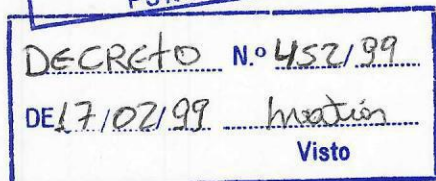 DECRETO N.º 452/99
DE 17/02/99
Visto